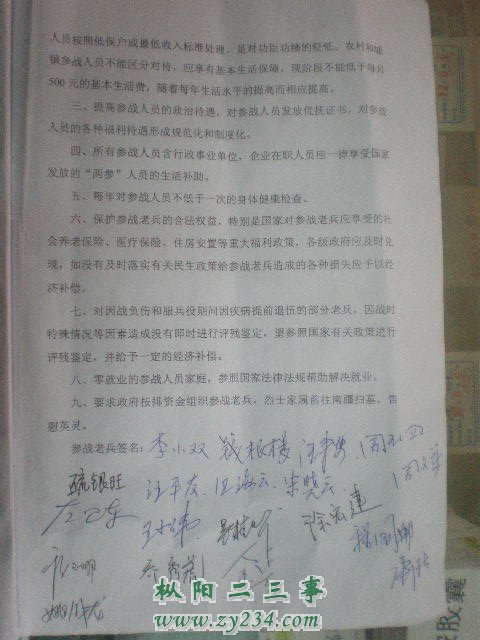 人员按照低保户或最低收入标准处理，是对功臣功绩的贬低。农村和城
镇参战人员不能区分对待，应享有基本生活保障，现阶段不能低于每月
500元的基本生活费，随着每年生活水平的提高而相应提高。
三、提高参战人员的政治待遇，对参战人员发放优抚证书，对参战
人员的各种福利待遇形成规范化和制度化。
四、所有参战人员含行政事业单位，企业在职人员应一律享受国家
发放的“两参”人员的生活补助。
五、每年对参战人员不低于一次的身体健康检查、
六、保护参战老兵的合法权益，特别是国家对参战老兵应享受的社
会养老保险、医疗保险、住房安置等重大福利政策，各级政府应及时兑
现，如没有及时落实有关民生政策给参战老兵造成的各种损失应予以经
济补偿。
七、对因战负伤和服兵役期间因疾病提前退伍的部分老兵，因战时
特殊情况等因素造成没有即时进行评残鉴定，望参照国家有关政策进行
评残鉴定，并给予一定的经济补偿。
八、零就业的参战人员家庭，参照国家法律法规帮助解决就业。
九、要求政府按排资金组织参战老兵，烈士家属前往南疆扫墓，告
慰英灵。
参战老兵签名：李小双
疏银旺 汪平友 宋晓云
胶囊
枞阳二三事
www.zy234.com